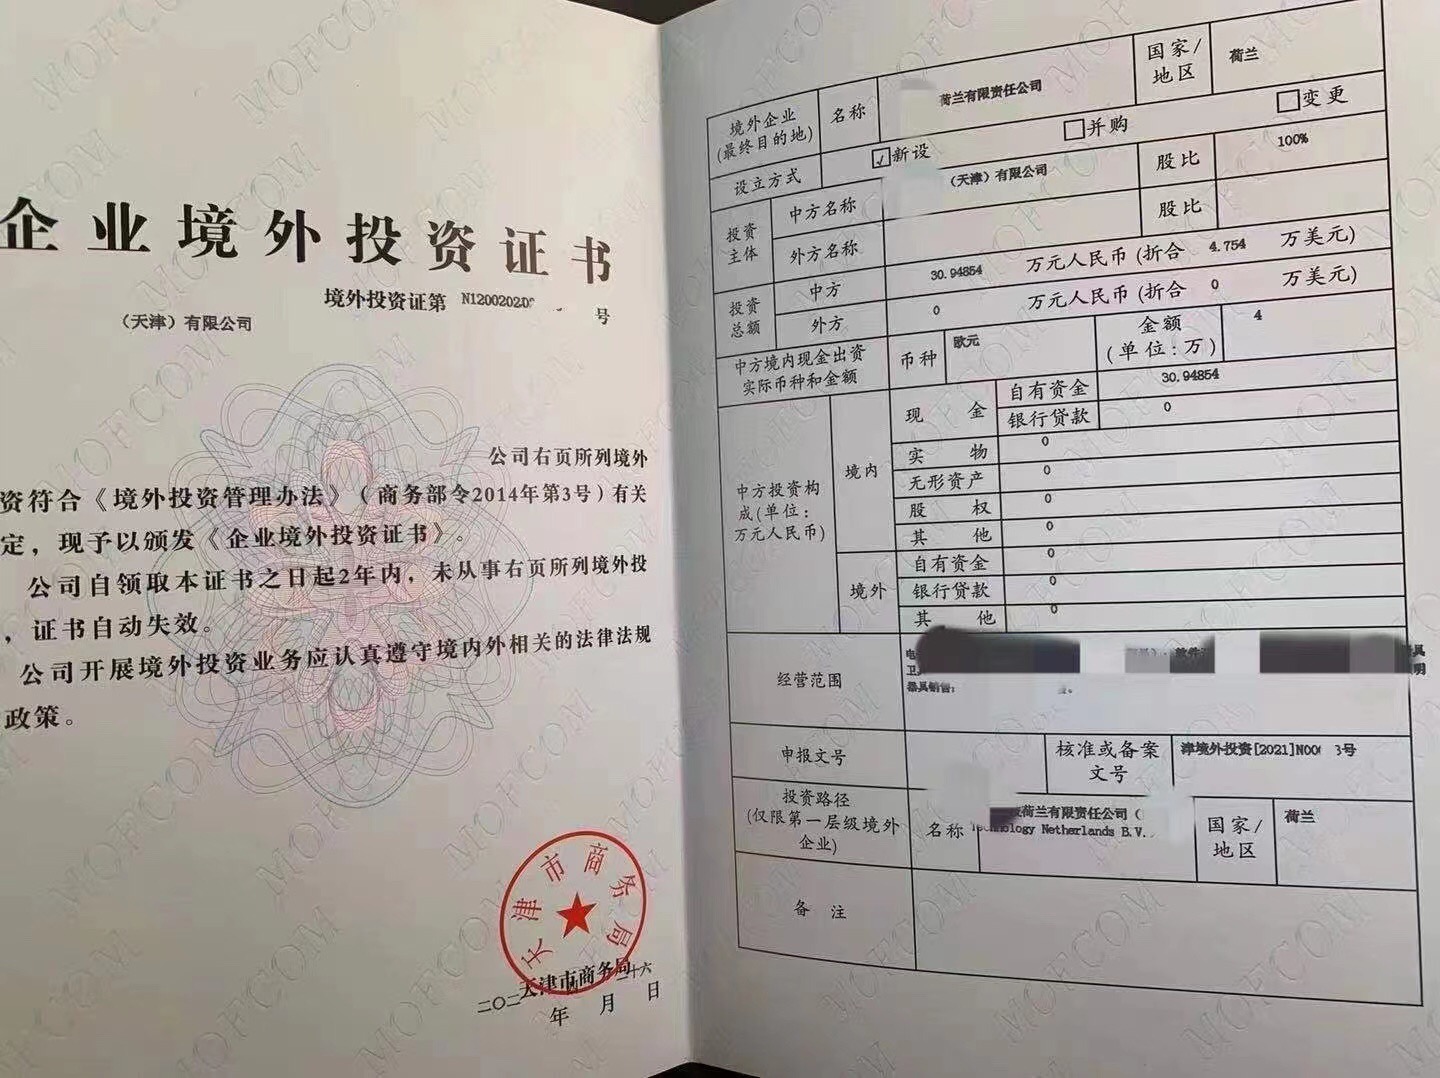 企业境外投资证书
境外投资证第 N1200202 号
（天津）有限公司
公司右页所列境外
资符合《境外投资管理办法》（商务部令2014年第3号）有关
定，现予以颁发《企业境外投资证书》。
公司自领取本证书之日起2年内，未从事右页所列境外投
，证书自动失效。
公司开展境外投资业务应认真遵守境内外相关的法律法规
政策。
天津市商务局
天津市商务局
二〇二 年 月 十六 日
境外企业
(最终目的地)
名称
荷兰有限责任公司
国家/
地区
荷兰
设立方式
☑新设
□并购
□变更
投资
主体
中方名称
（天津）有限公司
股比
100%
外方名称
股比
投资
总额
中方
30.94854 万元人民币 (折合 4.754 万美元)
外方
0 万元人民币 (折合 0 万美元)
中方境内现金出资
实际币种和金额
币种
欧元
金额
(单位:万)
4
中方投资构
成(单位:
万元人民币)
境内
现 金
自有资金
30.94854
银行贷款
0
实 物
0
无形资产
0
股 权
0
其 他
0
境外
自有资金
0
银行贷款
0
其 他
0
经营范围
器具销售;
申报文号
核准或备案
文号
津境外投资[2021]N00 3号
投资路径
(仅限第一层级境外
企业)
名称
荷兰有限责任公司（
Netherlands B.V.
国家/
地区
荷兰
备 注
MOFCOM